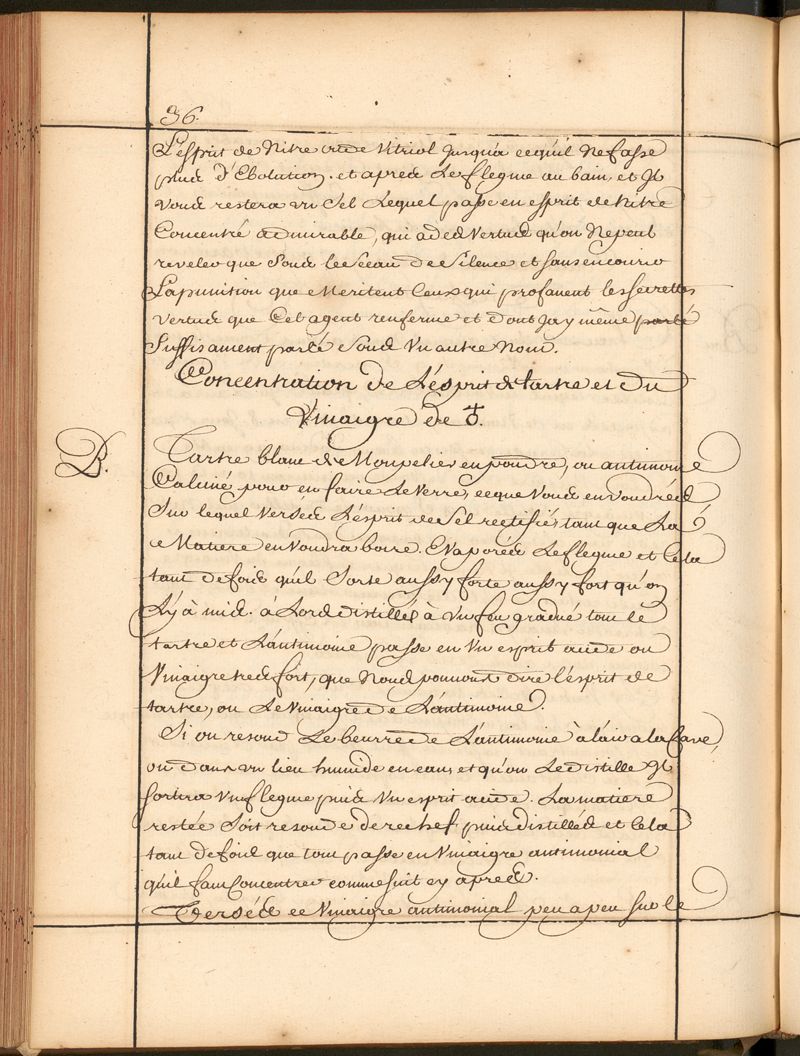 36.
L'esprit de Nitre ou de Vitriol Jusqu'a ce qu'il Ne fasse
plus d'Ebolution. et apres Le flegme au bain, et Jl
Vous restera un Sel Lequel passe en esprit de Nitre
Concentré admirable, qui a des Vertus qu'on Ne peut
reveler que Sous le Sceau de Silence et sans encourir
La punition que Meritent Ceux qui profanent les secrettes
vertus que Cet agent renferme et dont J'ay même parlé
Suffisament parlé Sous Un autre Nom.
Concentration de L'esprit de tartre et du
Vinaigre de ♁.
R.
Tartre blanc de Monpelier en poudre, ou antimoine
Calciné pour en faire Le Verre, ce que Vous en Voudrés
Sur lequel Versés L'esprit de Sel rectifiés, tant que La
Matiere en Voudra boire. Evaporés Le flegme et Cela
tant de fois qu'il Sorte aussy forte aussy fort qu'on
L'y a mis. à Lors distillés à Un feu gradué tout le
tartre et L'antimoine passe en Un esprit acide ou
Vinaigre tres fort, que Nous pouvons dire l'esprit de
tartre, ou Le Vinaigre de L'antimoine.
Si on resout Le beurre de L'antimonie à l'air a la Cave,
ou dans un lieu humide en eau, et qu'on Le distille Jl
Sortira Un flegme puis Un esprit acide. La matiere
restée Soit resoute derechef puis distillés et Cela
tant de fois que tout passe en Vinaigre antimonial
qu'il faut Concentrer comme suit cy apres.
Versés ce Vinaigre antimonial peu a peu sur le